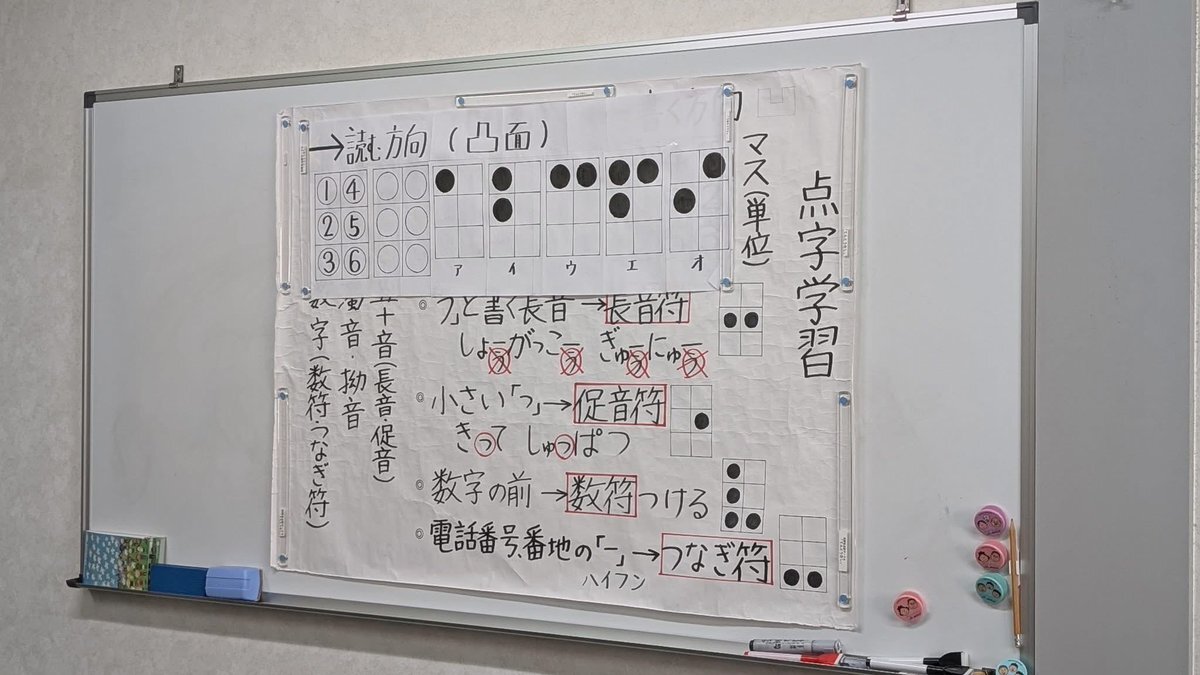 →読む方向(凸面)
①④
②⑤
③⑥
ア イ ウ エ オ
点字学習
マス(単位)
う」と書く長音→長音符
しょーうがっこーう ぎゅーうにゅーう
小さい「っ」→促音符
きって しゅっぱつ
数字の前→数符つける
電話番号、番地の「-」→つなぎ符
ハイフン
五十音(長音・促音)
濁音・拗音
数字(数符・つなぎ符)